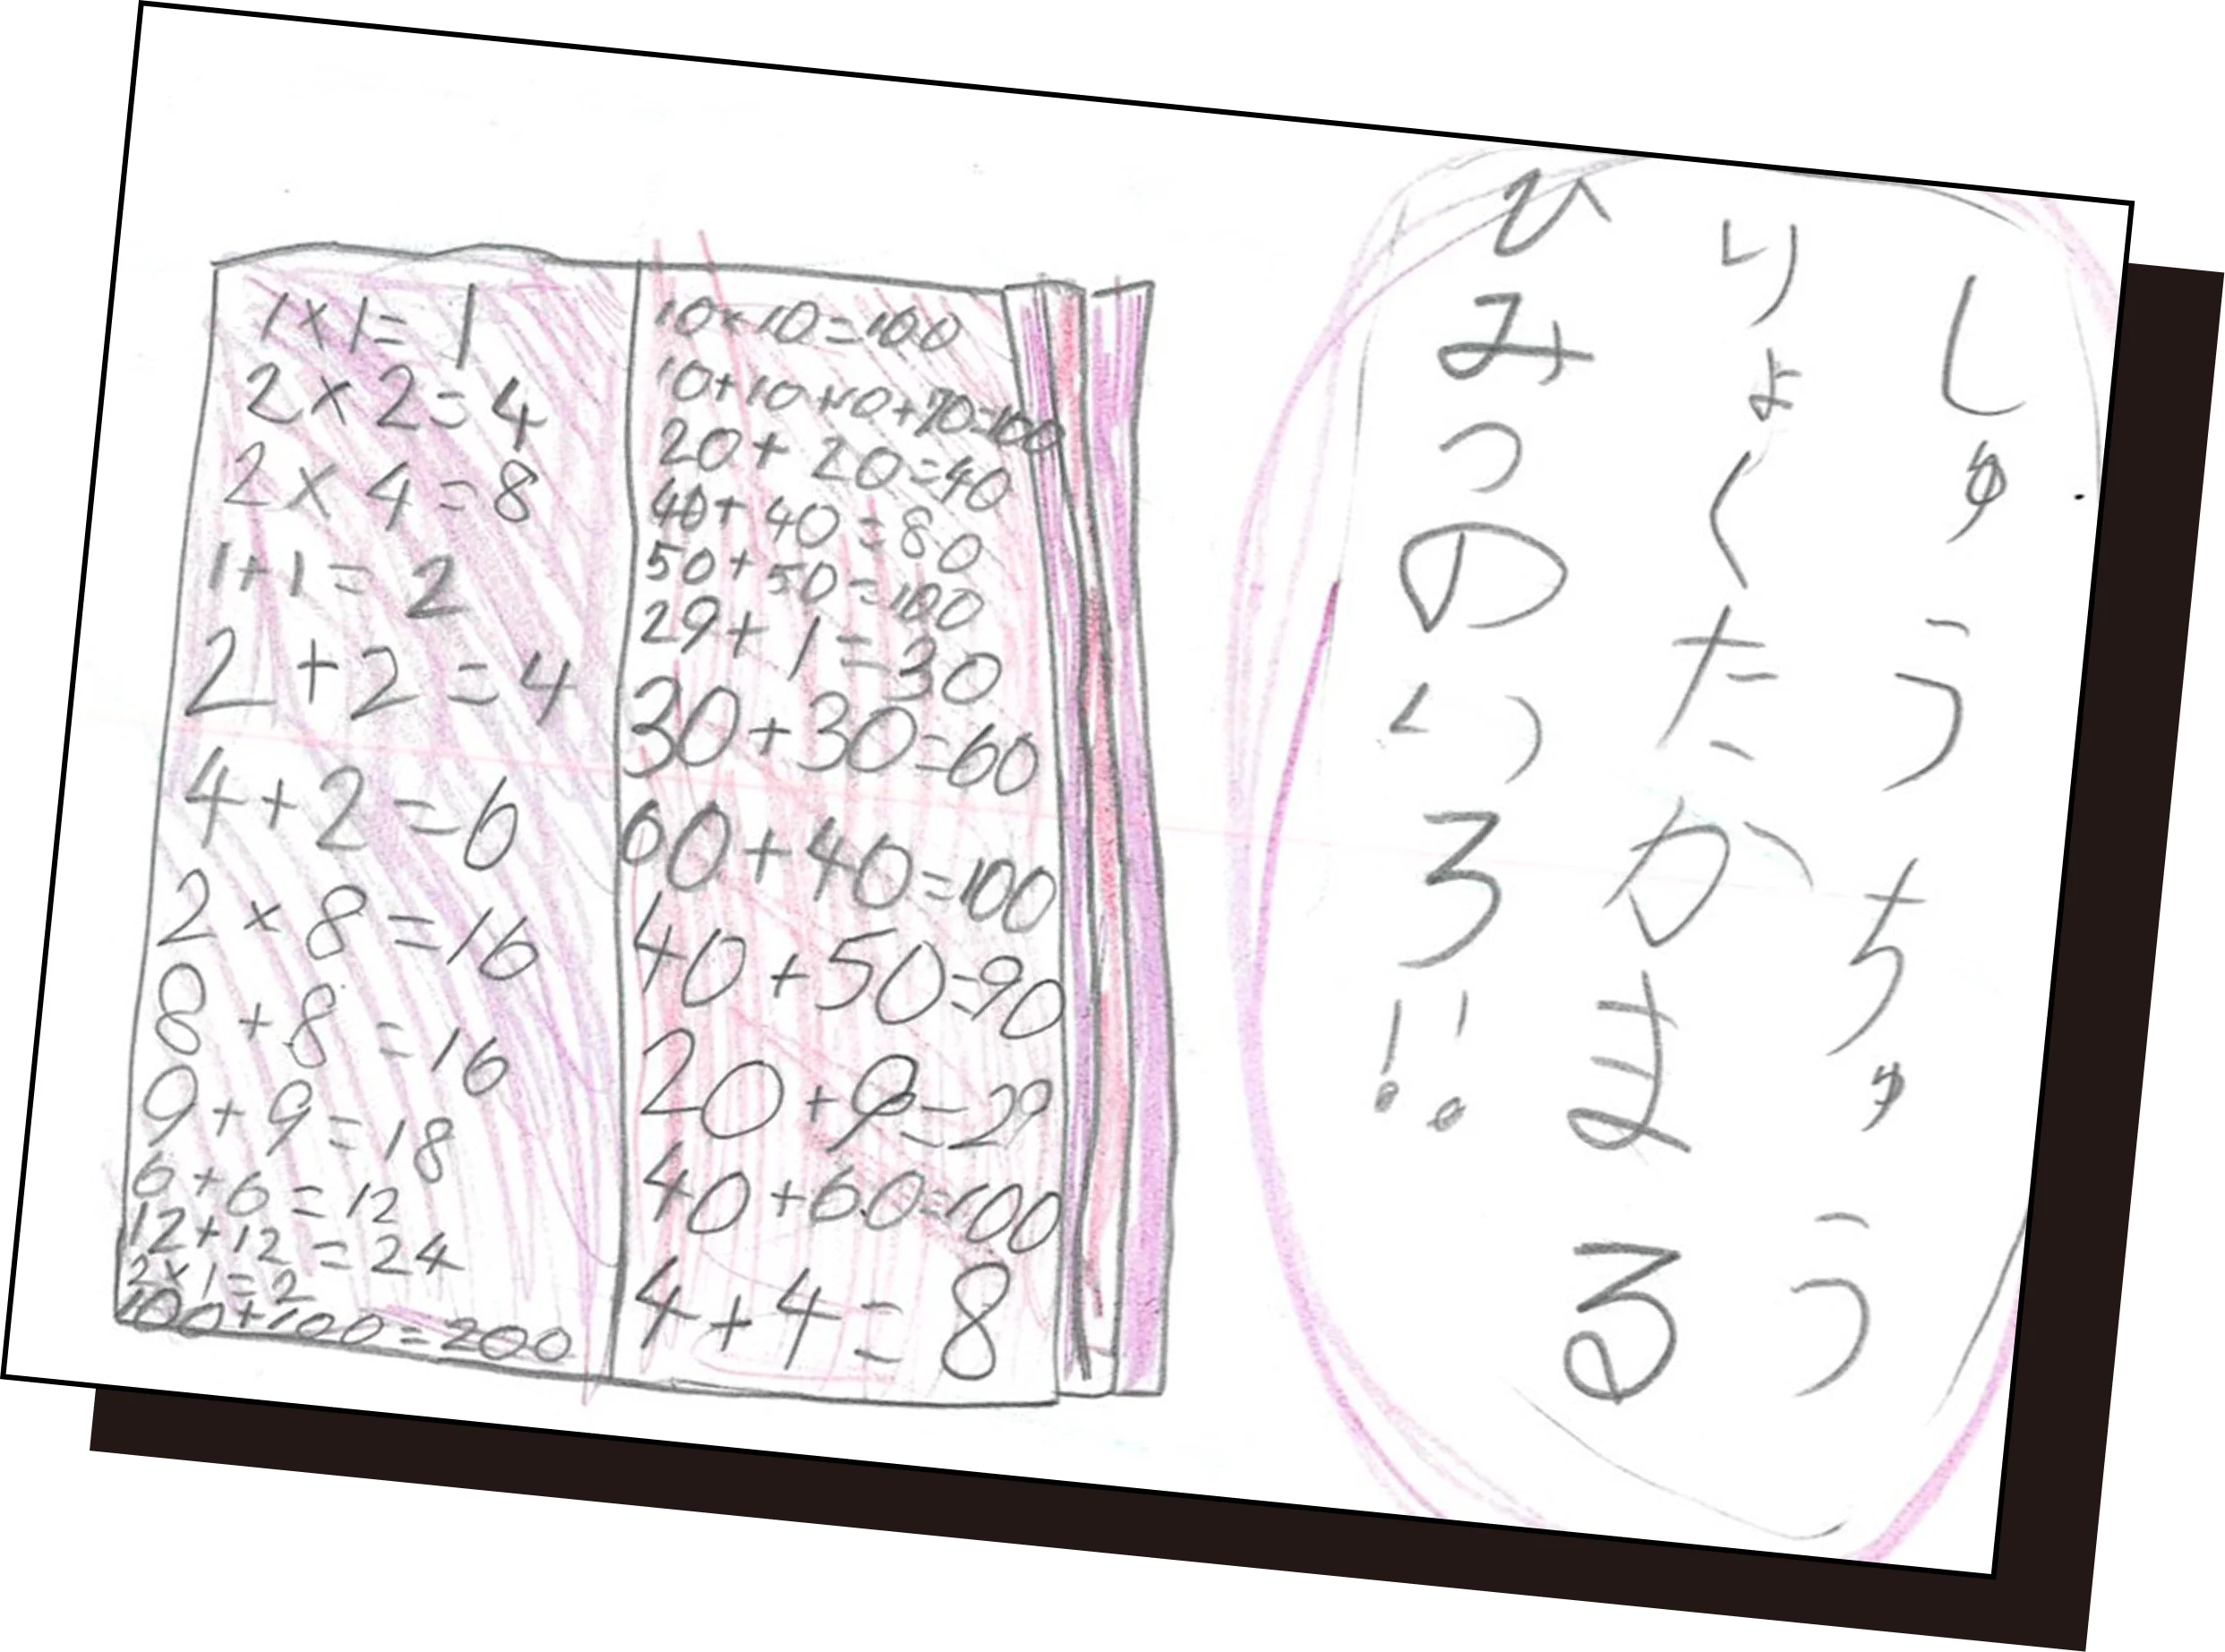 しゅうちゅう
りょくたかまる
ひみつのいろ!!
1×1=1
2×2=4
2×4=8
1+1=2
2+2=4
4+2=6
2×8=16
8+8=16
9+9=18
6+6=12
12+12=24
2×1=2
100+100=200
10×10=100
10+10+10+70=100
20+20=40
40+40=80
50+50=100
29+1=30
30+30=60
60+40=100
40+50=90
20+9=29
40+60=100
4+4=8